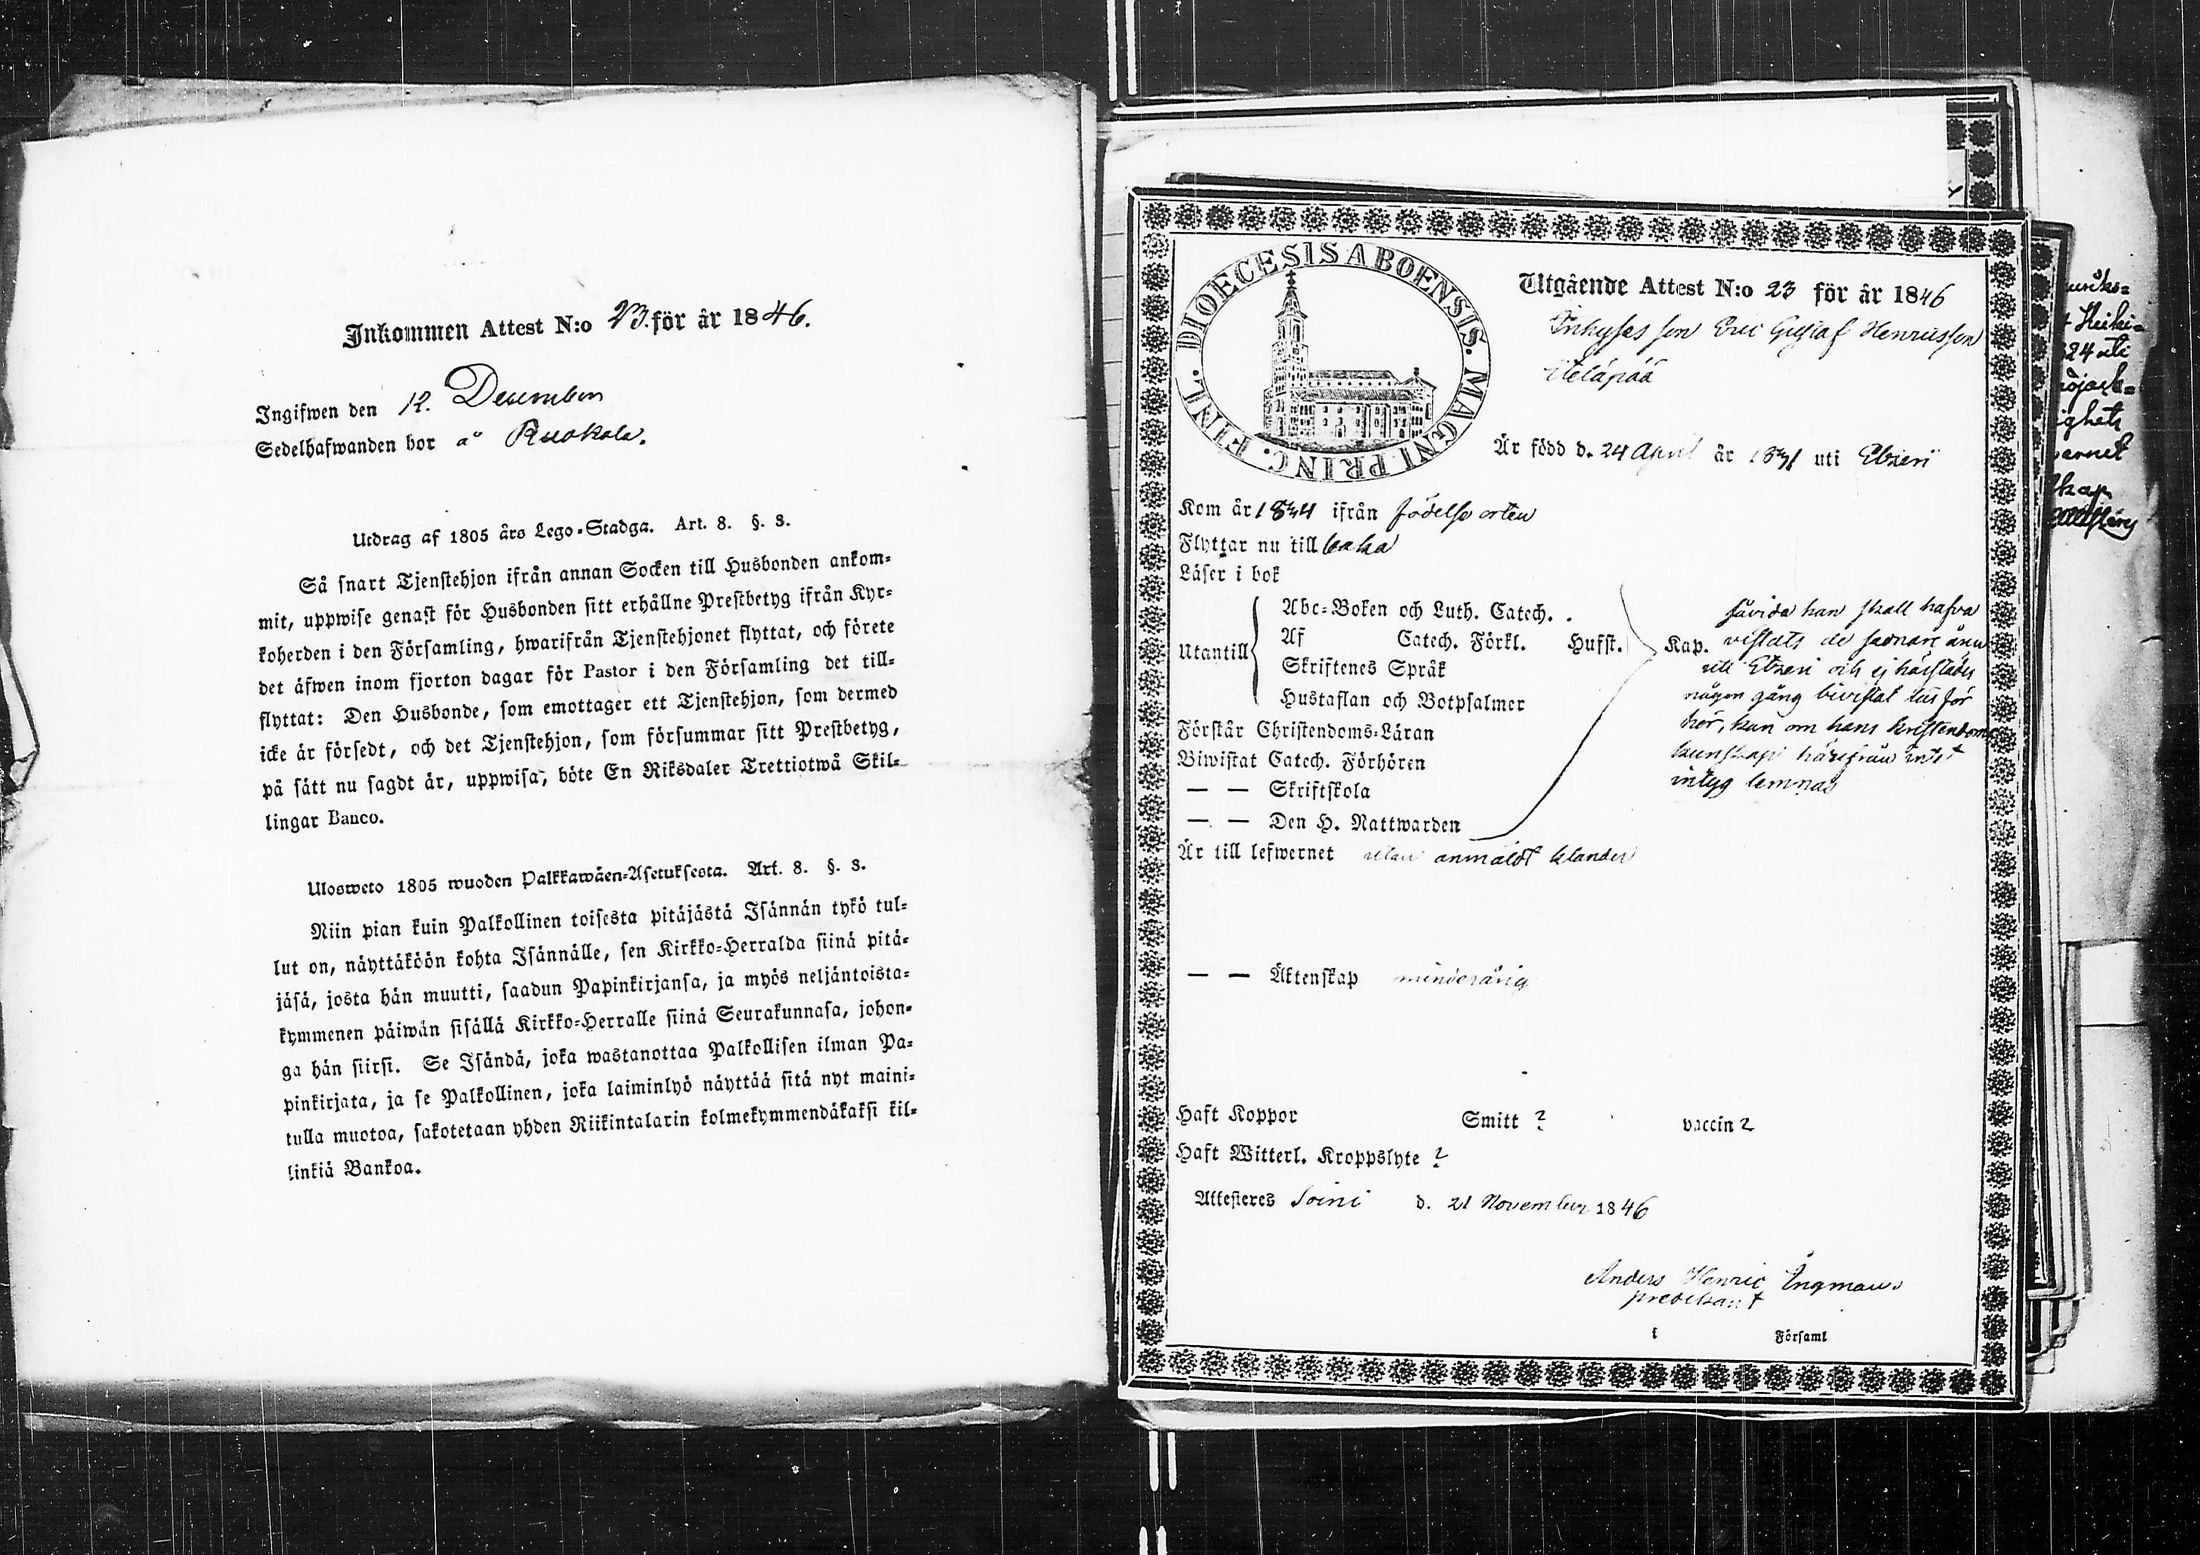 Inkommen Attest N:o 23. för år 1846.
Ingifwen den 12. December
Sedelhafwanden bor å Ruokola.
Utdrag af 1805 års Lego-Stadga. Art. 8. §. 3.
Så snart Tjenstehjon ifrån annan Socken till Husbonden ankom=
mit, uppwise genast för Husbonden sitt erhållne Prestbetyg ifrån Kyr=
koherden i den Församling, hwarifrån Tjenstehjonet flyttat, och förete
det äfwen inom fjorton dagar för Pastor i den Församling det till=
flyttat: Den Husbonde, som emottager ett Tjenstehjon, som dermed
icke är försedt, och det Tjenstehjon, som försummar sitt Prestbetyg,
på sätt nu sagdt är, uppwisa, böte En Riksdaler Trettiotwå Skil=
lingar Banco.
Ulosweto 1805 wuoden Palkkawäen=Asetuksesta. Art. 8. §. 3.
Niin pian kuin Palkollinen toisesta pitäjästä Isännän tykö tul=
lut on, näyttäköön kohta Isännälle, sen Kirkko=Herralda siinä pitä=
jäsä, josta hän muutti, saadun Papinkirjansa, ja myös neljäntoista=
kymmenen päiwän sisällä Kirkko=Herralle siinä Seurakunnasa, johon=
ga hän siirsi. Se Isändä, joka wastanottaa Palkollisen ilman Pa=
pinkirjata, ja se Palkollinen, joka laiminlyö näyttää sitä nyt maini=
tulla muotoa, sakotetaan yhden Riikintalarin kolmekymmendäkaksi kil=
linkiä Bankoa.
FINL. DIOECESIS ABOENSIS. MAGNI PRINC.
Utgående Attest N:o 23 för år 1846
Inhyses son Eric Gustaf Henricsson
Är född d. 24 April år 1831 uti Etseri
Kom år 1844 ifrån födelse orten
Flyttar nu till baka
Läser i bok
Utantill
Abc=Boken och Luth. Catech. .
Af Catech. Förkl. Hufst. Kap.
Skriftenes Språk
Hustaflan och Botpsalmer
Förstår Christendoms=Läran
Biwistat Catech. Förhören
— — Skriftskola
— — Den H. Nattwarden
såvida han skall hafva
vistats de sednare åren
uti Etseri och ej härstädes
någon gång bivistat läsför
hör, kan om hans kristendoms
kunskap härifrån intet
intyg lemnas
Är till lefwernet utan anmäldt klander
— — Äktenskap minderårig
Haft Koppor Smitt ? vaccin ?
Haft Witterl. Kroppslyte ?
Attesteres Soini d. 21 November 1846
Anders Henric Ingman
predikant
i Församl